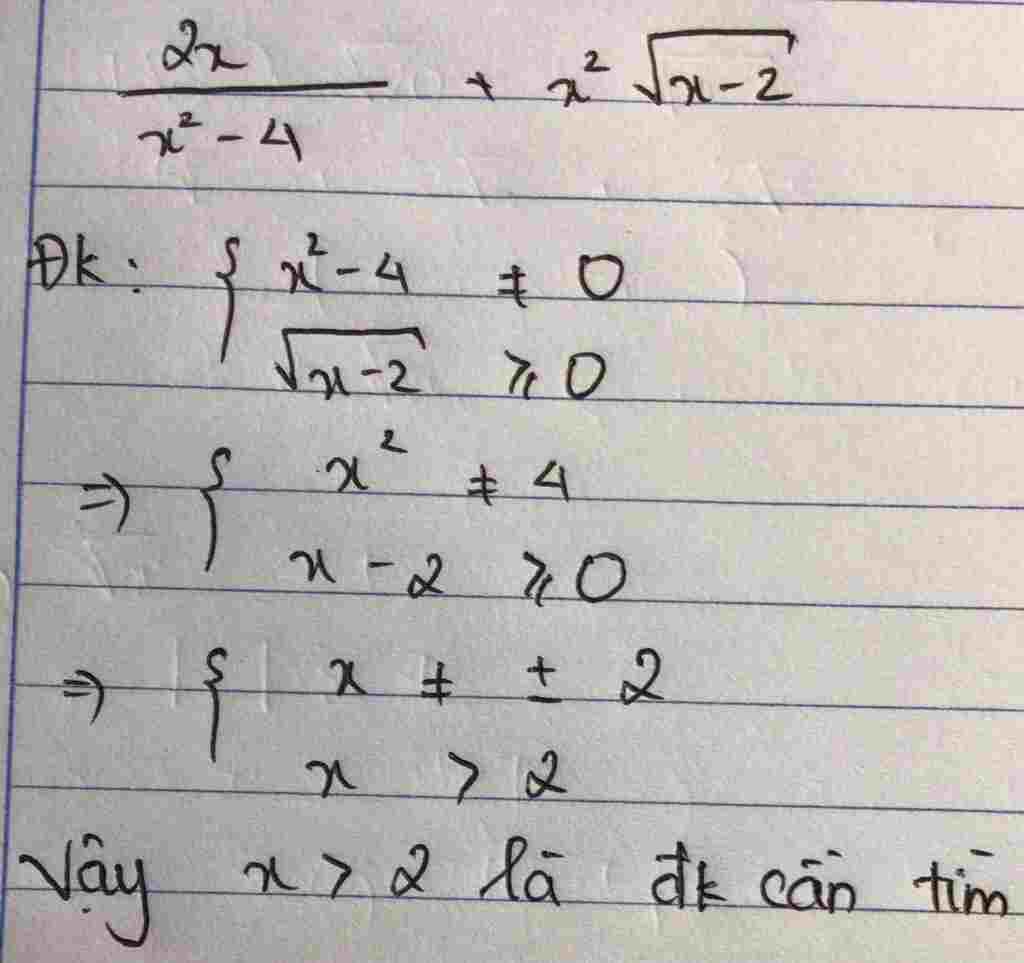 2x / x² - 4 + x² √(x-2)
Đk: { x² - 4 ≠ 0
√(x-2) ⩾ 0
=> { x² ≠ 4
x - 2 ⩾ 0
=> { x ≠ ± 2
x > 2
Vậy x > 2 là đk cần tìm